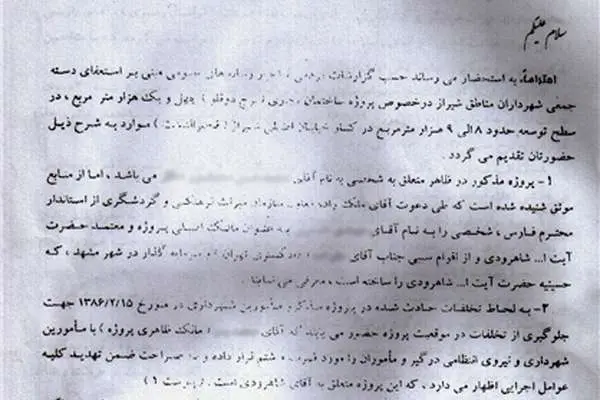 سلام علیکم
احتراماً، به استحضار می رساند حسب گزارشات مردمی مبنی بر استعفای دسته
جمعی شهرداران مناطق شیراز درخصوص پروژه ساختمان تجاری ( برج دوقلو ) چهل و یک هزار متر مربع ، در
سطح توسعه حدود ۸ الی ۹ هزار مترمربع در کنار خیابان شیراز ( ) موارد به شرح ذیل
حضورتان تقدیم می گردد .
۱- پروژه مذکور در ظاهر متعلق به شخصی به نام آقای می باشد ، اما از منابع
موثق شنیده شده است که طی دعوت آقای سازمان میراث فرهنگی و گردشگری از استاندار
محترم فارس ، شخصی را به نام آقای به عنوان مالک اصلی پروژه و معتمد حضرت
آیت ا... شاهرودی و از اقوام سببی جناب آقای دادگستری تهران و سرمایه گذار در شهر مشهد ، که
حسینیه حضرت آیت ا... شاهرودی را ساخته است ، معرفی می نماید .
۲- به لحاظ تخلفات حادث شده در پروژه مذکور مأمورین شهرداری در مورخ ۱۳۸۶/۲/۱۵ جهت
جلوگیری از تخلفات در موقعیت پروژه حضور می یابند که آقای ( مالک ظاهری پروژه ) با مأمورین
شهرداری و نیروی انتظامی درگیر و مأموران را مورد ضرب و شتم قرار داده و با صراحت ضمن تهدید کلیه
عوامل اجرایی اظهار می دارد ، که این پروژه متعلق به آقای شاهرودی است . ( پیوست ۱ )